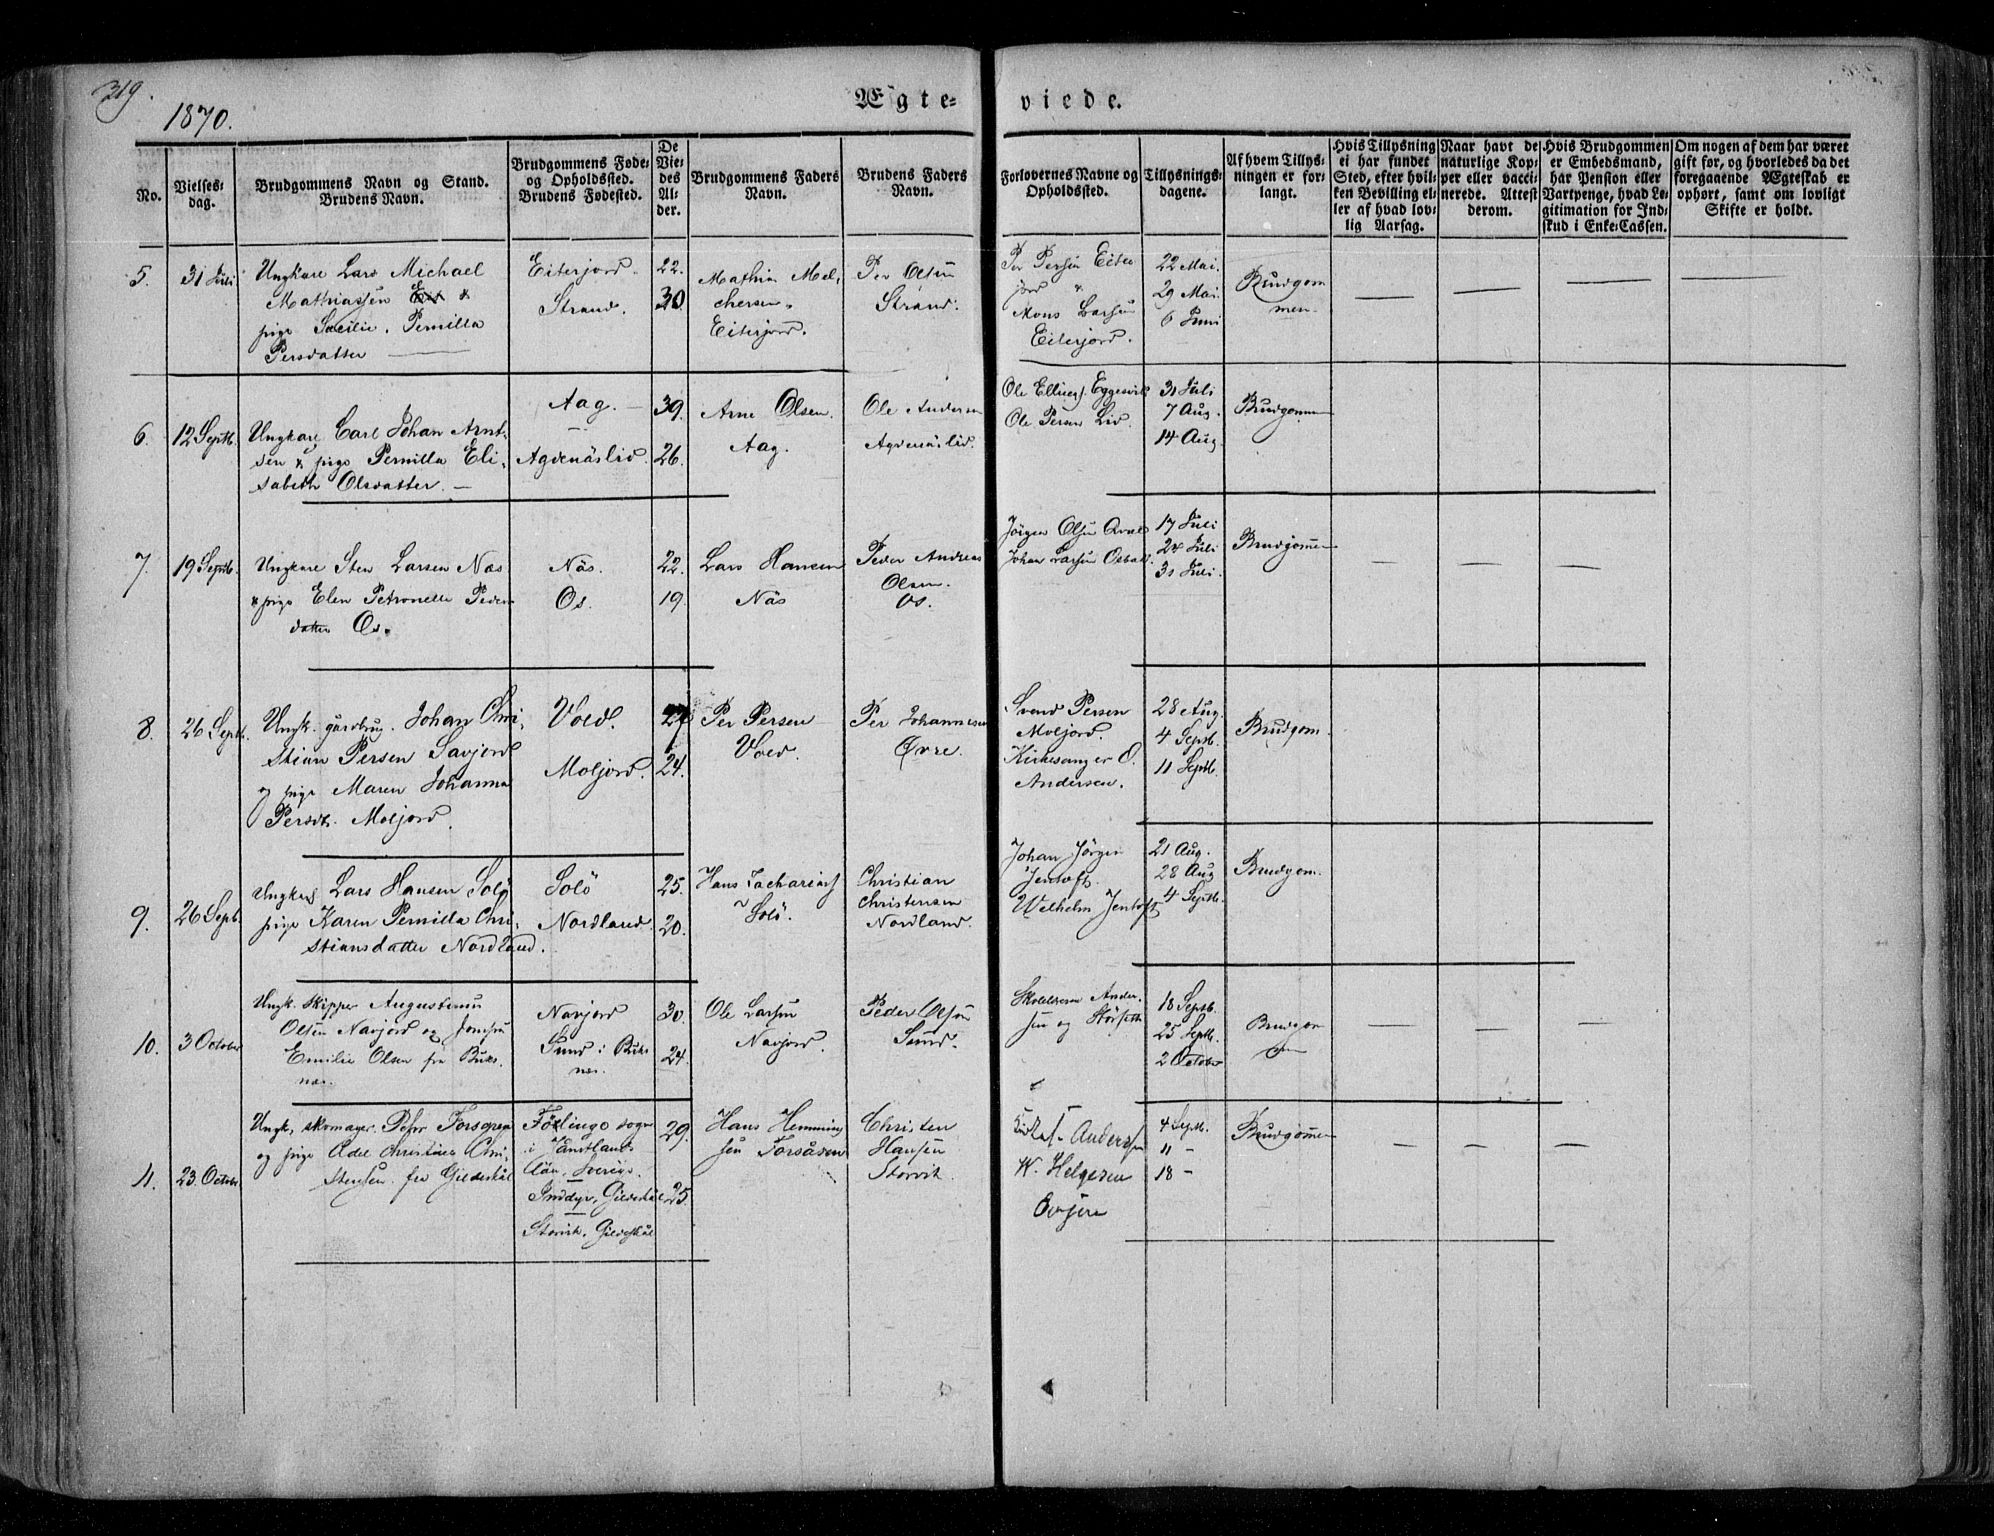 319.
1870.
Ægte-
viede.
No.
Vielses-
dag.
Brudgommens Navn og Stand.
Brudens Navn.
Brudgommens Føde-
og Opholdssted.
Brudens Fødested.
De
Vie-
des
Al-
der.
Brudgommens Faders
Navn.
Brudens Faders
Navn.
Forlovernes Navne og
Opholdssted.
Tillysnings-
dagene.
Af hvem Tillys-
ningen er for-
langt.
Hvis Tillysning
ei har fundet
Sted, efter hvil-
ken Bevilling el-
ler af hvad lov-
lig Aarsag.
Naar havt de
naturlige Kop-
per eller vacci-
nerede. Attest
derom.
Hvis Brudgommen
er Embedsmand,
har Pension eller
Vartpenge, hvad Le-
gitimation for Ind-
skud i Enke-Cassen.
Om nogen af dem har været
gift før, og hvorledes da det
foregaaende Ægteskab er
ophørt, samt om lovligt
Skifte er holdt.
5.
31 Juli
Ungkare Lars Michael
Mathiassen
pige Sæcilie Pernilla
Persdatter
Eiterjord.
Strand.
22.
30.
Mathias Mel-
chersen
Eiterjord.
Per Olsen
Strand.
Per Persen Eiter
jord
Mons Larsen
Eiterjord.
22 Mai.
29 Mai.
6 Juni
Brudgom
men
6.
12 Septb.
Ungkare Carl Johan Arnt-
sen & pige Pernilla Eli-
sabeth Olsdatter.
Aag.
Agdenäslid.
39.
26.
Arne Olsen.
Aag.
Ole Andersen
Agdenäslid.
Ole Ellings. Eggesvik
Ole Persen Lid.
31 Juli
7 Aug.
14 Aug.
Brudgommen
7.
19 Septb.
Ungkare Sten Larsen Næs
& pige Elen Petronelle Peder
datter Os.
Näs.
Os.
22.
19.
Lars Hansen
Näs
Peder Andreas
Olsen
Os.
Jörgen Olsen
Johan Larsen Osbak
17 Juli
24 Juli
31 Juli.
Brudgommen
8.
26 Septb.
Ungk. gårdbrug. Johan Chri-
stian Persen Savjord
og pige Maren Johanna
Persdt. Moljord.
Vold.
Moljord.
27
24.
Per Persen
Vold.
Per Johannesen
Øvre.
Svend Persen
Moljord.
Kirkesanger O.
Andersen.
28 Aug.
4 Septb.
11 Septb.
Brudgom.
9.
26 Septb.
Ungkars Lars Hansen Solö
pige Karen Pernilla Chri-
stiansdatter Nordland.
Solö
Nordland.
25.
20.
Hans Zacharias
Solö.
Christian
Christensen
Nordland.
Johan Jörgen
Jentoft.
Wilhelm Jentoft
21 Aug.
28 Aug
4 Septb.
Brudgom.
10.
3 October
Ungk. skipper Augustinus
Olsen Navjord og Jomfru
Emilie Olsen fra Buks
næs.
Navjord
Sund i Buks
næs.
30.
24.
Ole Larsen
Navjord.
Peder Olsen
Sund.
Ander-
sen og Störseth
18 Septb.
25 Septb.
2 October
Brudgom
11.
23 October
Ungk. skomager Pehr Forsgren
og pige Adel Christine Chri-
stensen fra Gildeskål
Fölinge sogn
i Jämtlands
Län, Sverige.
Inddyr, Gildeskål
Storvik, Gildeskål
29.
25.
Hans Hemming
sen Forsåsen
Christen
Hansen
Storvik.
Andersen
W. Helgesen
4 Septb.
11 -
18 -
Brudgommen